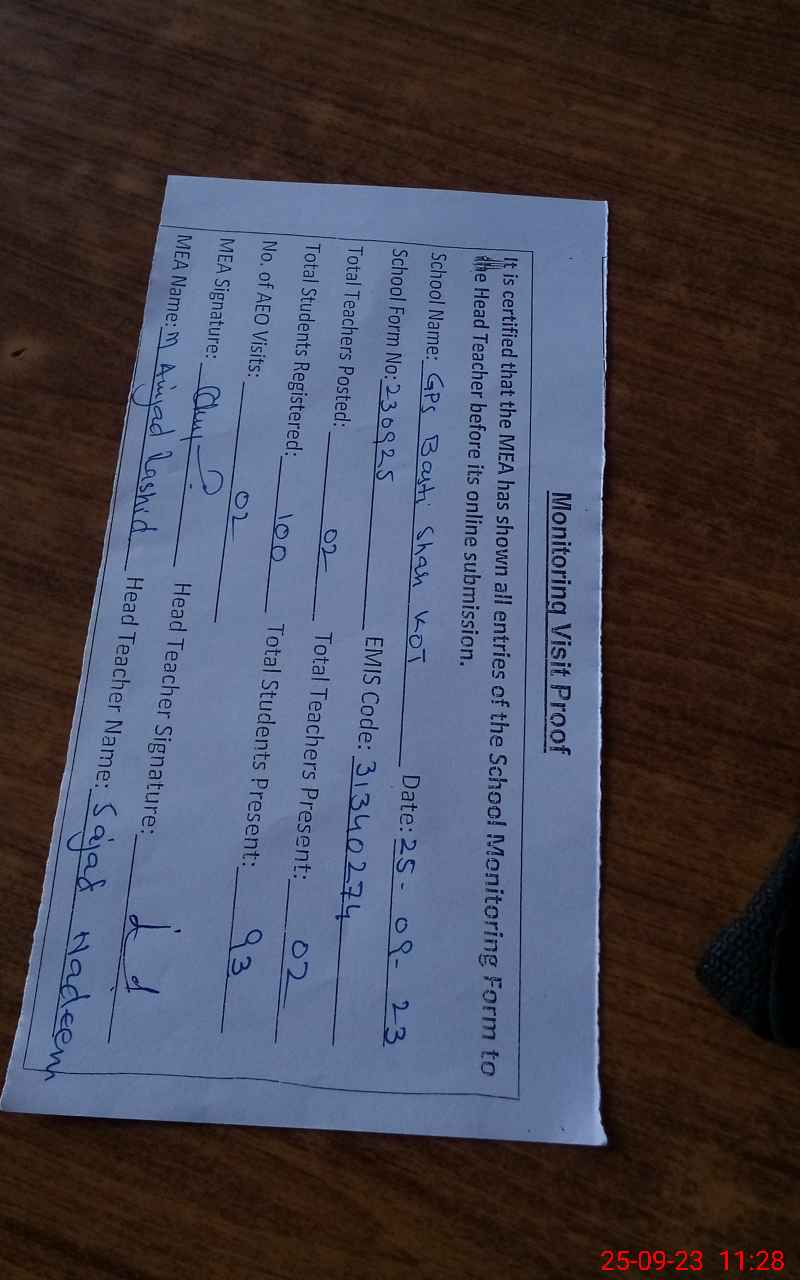 Monitoring Visit Proof
It is certified that the MEA has shown all entries of the School Monitoring Form to
the Head Teacher before its online submission.
School Name: GPS Basti Shah KOT Date: 25-09-23
School Form No: 230925 EMIS Code: 31340274
Total Teachers Posted: 02 Total Teachers Present: 02
Total Students Registered: 100 Total Students Present: 93
No. of AEO Visits: 02
MEA Signature: Head Teacher Signature:
MEA Name: M Amjad Rashid Head Teacher Name: Sajad Nadeem
25-09-23 11:28